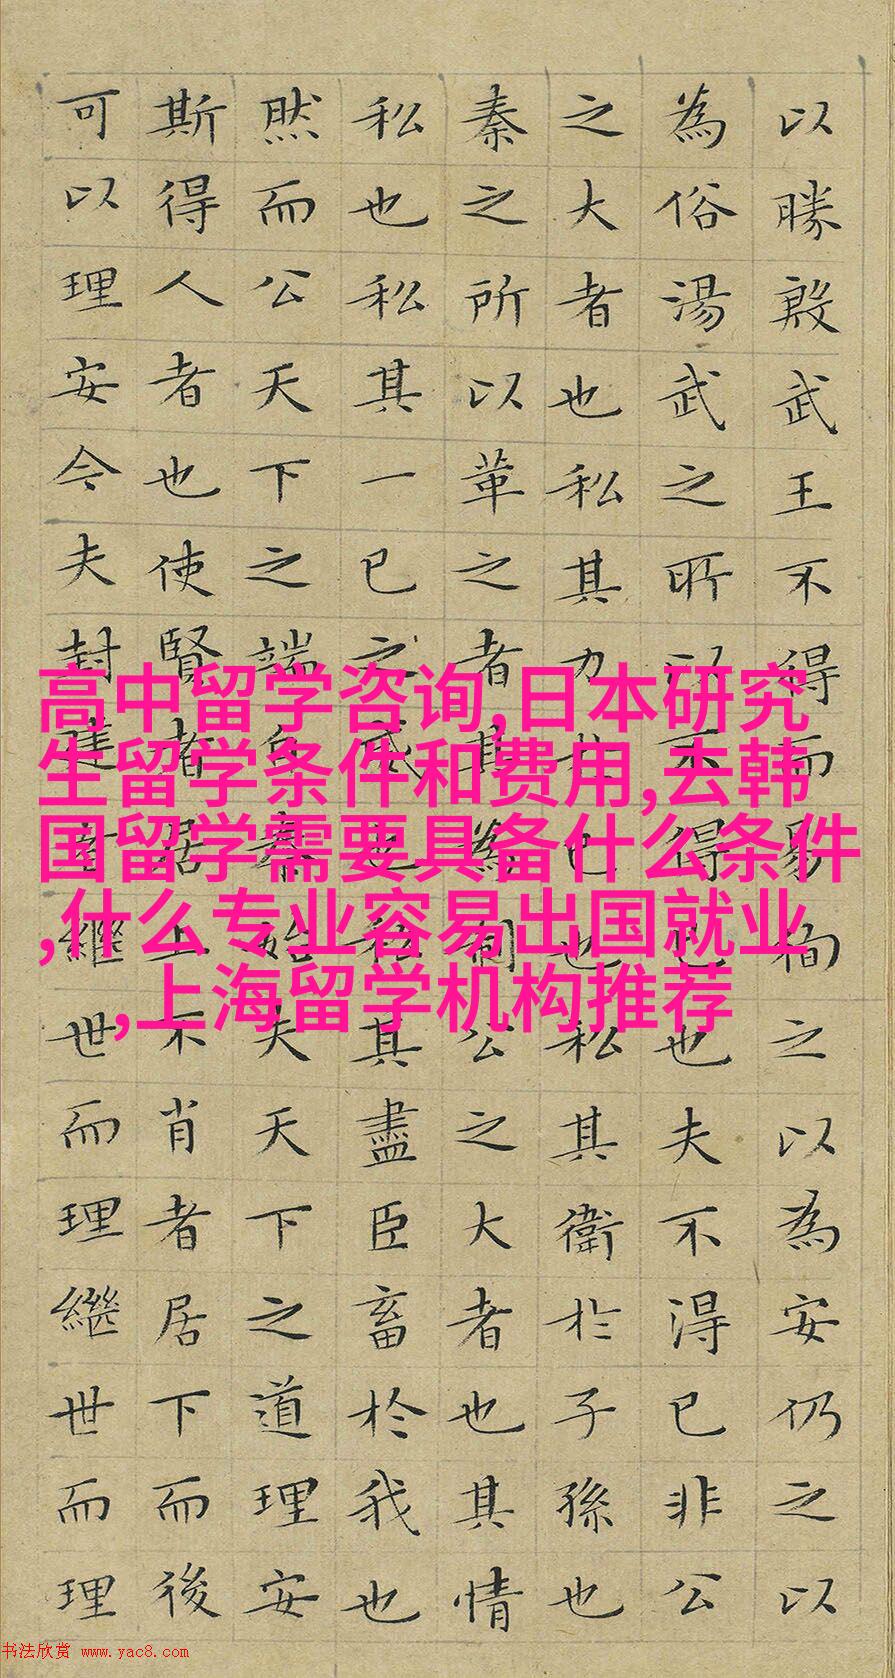 以勝殷武王不得而易徇之以為安仍之以
為俗湯武之所以不得已也夫不得已非公
之大者也私其力於己也私其衛於子孫也
秦之所以革之者其為制公之大者也其情
私也私其一己之威也私其盡臣畜於我也
然而公天下之端自秦始夫天下之道理安
斯得人者也使賢者居上不肖者居下而後
可以理安今夫封建者繼世而理繼世而理
高中留学咨询,日本研究
生留学条件和费用,去韩
国留学需要具备什么条件
,什么专业容易出国就业
,上海留学机构推荐
书法欣赏 www.yac8.com